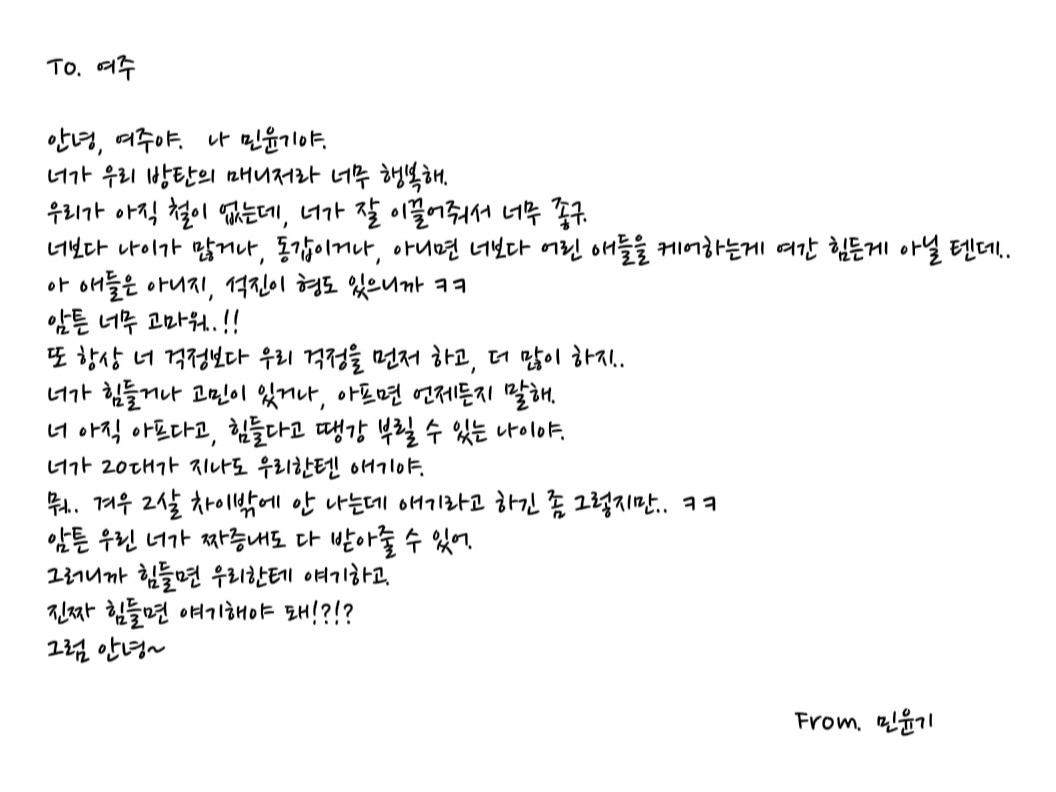 To. 여주
안녕, 여주야. 나 민윤기야.
너가 우리 방탄의 매니저라 너무 행복해.
우리가 아직 철이 없는데, 너가 잘 이끌어줘서 너무 좋구.
너보다 나이가 많거나, 동갑이거나, 아니면 너보다 어린 애들을 케어하는게 여간 힘든게 아닐 텐데..
아 애들은 아니지, 석진이 형도 있으니까 ㅋㅋ
암튼 너무 고마워..!!
또 항상 너 걱정보다 우리 걱정을 먼저 하고, 더 많이 하지..
너가 힘들거나 고민이 있거나, 아프면 언제든지 말해.
너 아직 아프다고, 힘들다고 땡강 부릴 수 있는 나이야.
너가 20대가 지나도 우리한텐 애기야.
뭐.. 겨우 2살 차이밖에 안 나는데 애기라고 하긴 좀 그렇지만.. ㅋㅋ
암튼 우린 너가 짜증내도 다 받아줄 수 있어.
그러니까 힘들면 우리한테 얘기하고.
진짜 힘들면 얘기해야 돼!?!?
그럼 안녕~
From. 민윤기